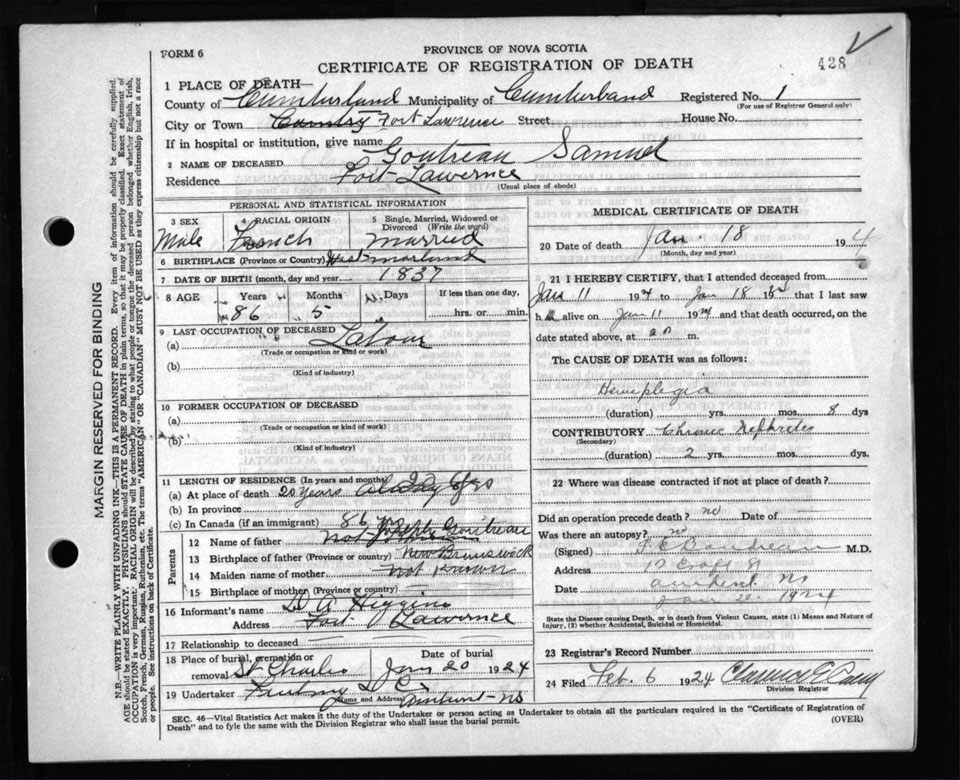 FORM 6
PROVINCE OF NOVA SCOTIA
CERTIFICATE OF REGISTRATION OF DEATH
428
1 PLACE OF DEATH—
County of Cumberland Municipality of Cumberland Registered No. 1
(For use of Registrar General only)
City or Town Country Fort Lawrence Street House No.
If in hospital or institution, give name
2 NAME OF DECEASED Goutreau Samuel
Residence Fort Lawernce
(Usual place of abode)
PERSONAL AND STATISTICAL INFORMATION
3 SEX 4 RACIAL ORIGIN 5 Single, Married, Widowed or Divorced (Write the word)
Male French Married
6 BIRTHPLACE (Province or Country) Westmorland
7 DATE OF BIRTH (month, day and year) 1837
8 AGE Years Months Days If less than one day,
86 5 hrs. or min.
9 LAST OCCUPATION OF DECEASED
(a) Labour
(Trade or occupation or kind or work)
(b)
(Kind of industry)
10 FORMER OCCUPATION OF DECEASED
(a)
(Trade or occupation or kind or work)
(b)
(Kind of industry)
11 LENGTH OF RESIDENCE (In years and months)
(a) At place of death 20 years
(b) In province
(c) In Canada (if an immigrant) 86 yrs
Parents
12 Name of father Joseph Goutreau
13 Birthplace of father (Province or country) New Brunswick
14 Maiden name of mother Not Known
15 Birthplace of mother (Province or country)
16 Informant's name D A Higgins
Address Fort Lawernce
17 Relationship to deceased
18 Place of burial, cremation or removal St Charles Date of burial Jan 20 1924
19 Undertaker
(Name and Address) Amherst - NS
MEDICAL CERTIFICATE OF DEATH
20 Date of death Jan. 18 192 4
(Month, day and year)
21 I HEREBY CERTIFY, that I attended deceased from
Jan 11 1924 to Jan 18 1924 that I last saw
h alive on Jan 11 1924 and that death occurred, on the
date stated above, at m.
The CAUSE OF DEATH was as follows:
Hemiplegia
(duration) yrs. mos. 8 dys
CONTRIBUTORY Chronic Nephritis
(Secondary)
(duration) 2 yrs. mos. dys.
22 Where was disease contracted if not at place of death?
Did an operation precede death? no Date of —
Was there an autopsy? no
(Signed) Goudreau M.D.
Address 12 Croft St
Amherst NS
Date Jan 20 1924
State the Disease causing Death, or in death from Violent Causes, state (1) Means and Nature of Injury, (2) whether Accidental, Suicidal or Homicidal.
23 Registrar's Record Number
24 Filed Feb. 6 1924 Clarence E Casey
Division Registrar
SEC. 46—Vital Statistics Act makes it the duty of the Undertaker or person acting as Undertaker to obtain all the particulars required in the "Certificate of Registration of
Death" and to fyle the same with the Division Registrar who shall issue the burial permit.
(OVER)
MARGIN RESERVED FOR BINDING
N.B.—WRITE PLAINLY WITH UNFADING INK—THIS IS A PERMANENT RECORD. Every item of information should be carefully supplied.
AGE should be stated EXACTLY. PHYSICIANS should STATE CAUSE OF DEATH in plain terms, so that it may be properly classified. Exact statement of
OCCUPATION is very important. RACIAL ORIGIN will be described by stating to what people or tongue the deceased person belonged whether English, Irish,
Scotch, French, German, Russian, Ruthenian, etc. The terms "AMERICAN" OR "CANADIAN" MUST NOT BE USED as they express citizenship but not a race
or people. See instructions on back of Certificate.